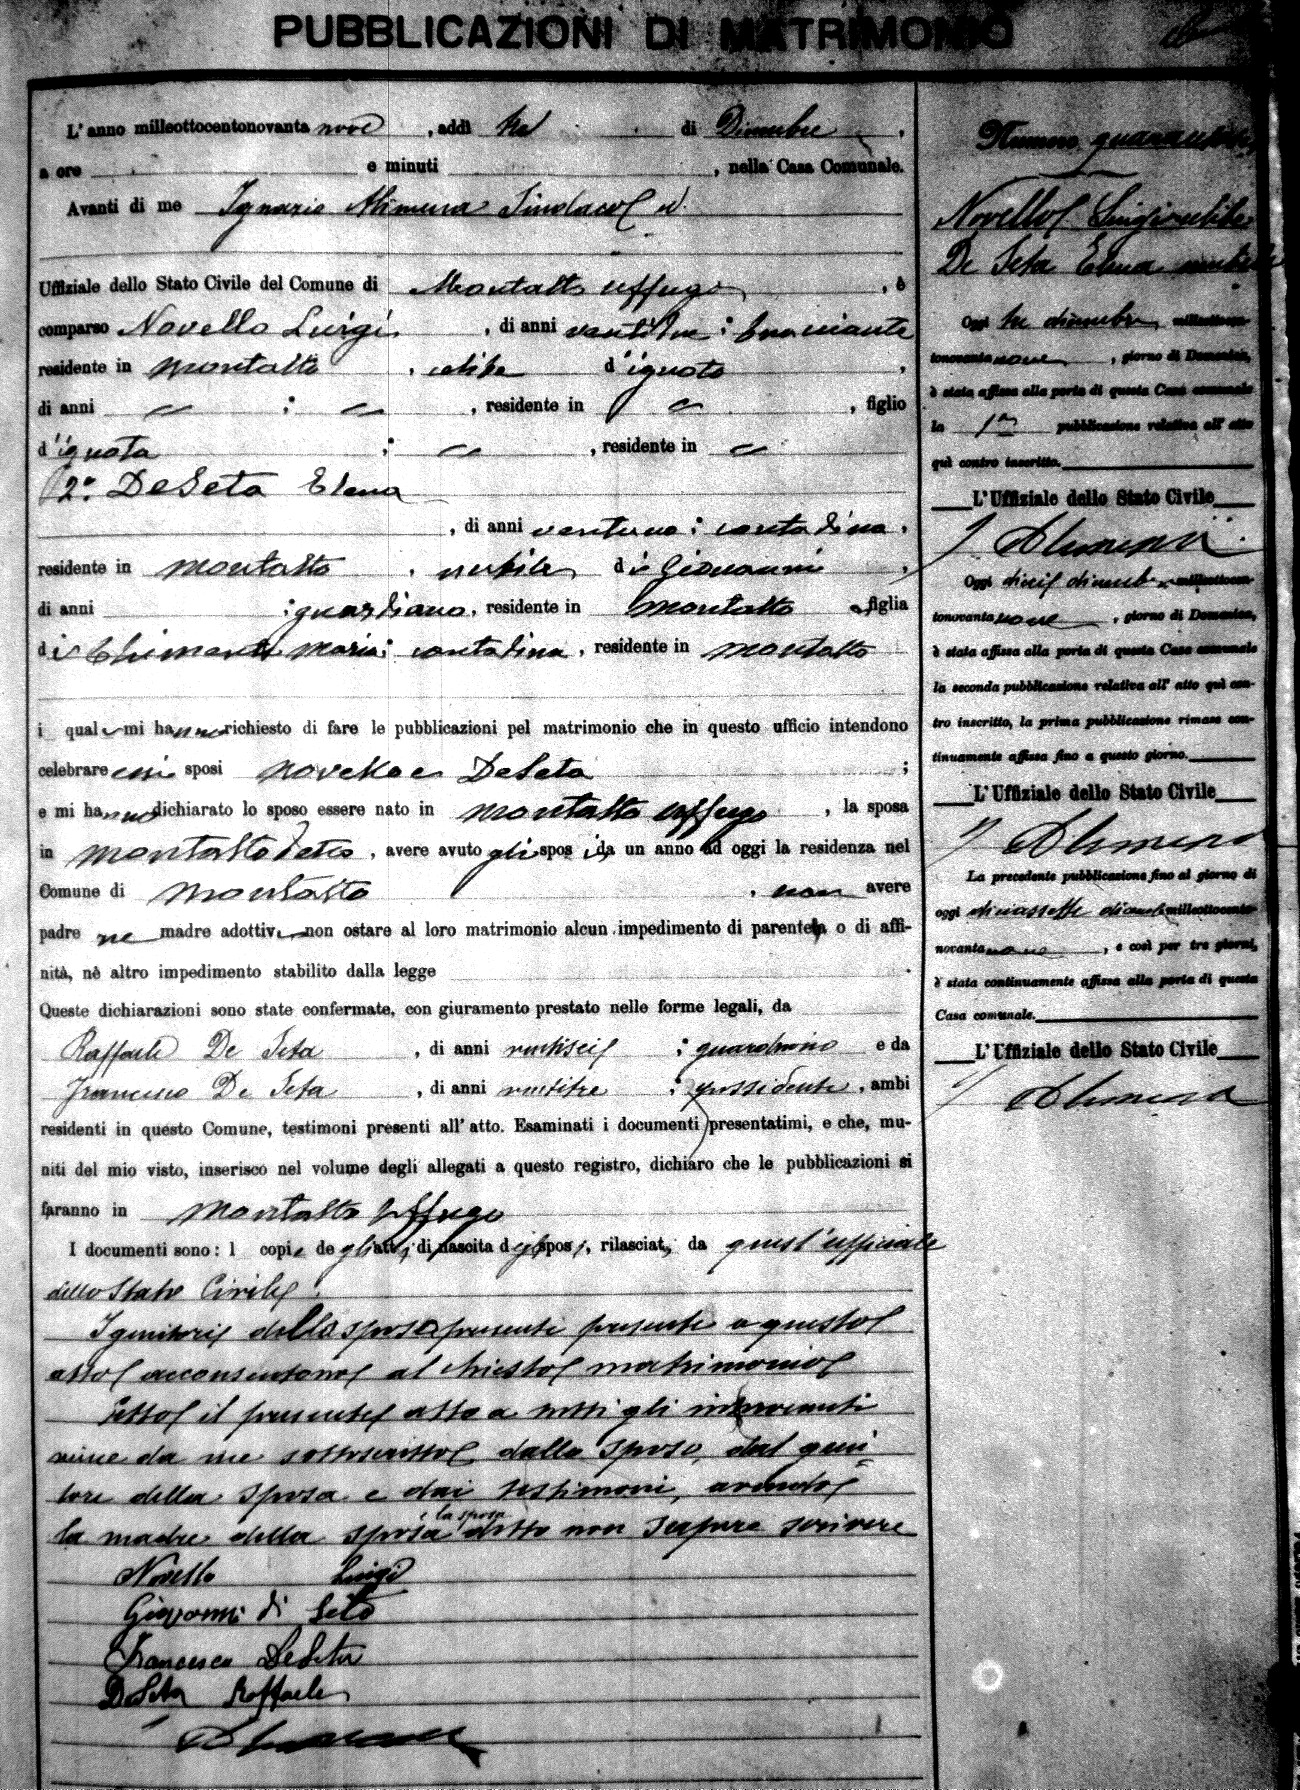 PUBBLICAZIONI DI MATRIMONIO
L'anno milleottocentonovanta nove, addì tre di Dicembre,
a ore e minuti, nella Casa Comunale.
Avanti di me Ignazio Alimena Sindaco
Uffiziale dello Stato Civile del Comune di Montalto Uffugo, è
comparso Novello Luigi, di anni ventitre; bracciante
residente in Montalto, celibe d'ignoto,
di anni " ; ", residente in ", figlio
d'ignota ; ", residente in "
2° DeSeta Elena
, di anni ventuno; contadina,
residente in Montalto, nubile, di Giovanni,
di anni ; guardiano, residente in Montalto figlia
di Chimenti Maria; contadina, residente in Montalto
i quali mi hanno richiesto di fare le pubblicazioni pel matrimonio che in questo ufficio intendono
celebrare essi sposi Novello e DeSeta ;
e mi hanno dichiarato lo sposo essere nato in Montalto Uffugo, la sposa
in Montalto detto, avere avuto gli sposi da un anno ad oggi la residenza nel
Comune di Montalto, non avere
padre ne madre adottivi non ostare al loro matrimonio alcun impedimento di parentela o di affi-
nità, nè altro impedimento stabilito dalla legge
Queste dichiarazioni sono state confermate, con giuramento prestato nelle forme legali, da
Raffaele De Seta, di anni ventisei; guardiano e da
Francesco De Seta, di anni ventitre; possidente, ambi
residenti in questo Comune, testimoni presenti all'atto. Esaminati i documenti presentatimi, e che, mu-
niti del mio visto, inserisco nel volume degli allegati a questo registro, dichiaro che le pubblicazioni si
faranno in Montalto Uffugo
I documenti sono: 1 copie de gli atti di nascita degli sposi, rilasciati da quest'ufficiale
dello Stato Civile.
I genitori della sposa presenti presente a questo
atto acconsentono al chiesto matrimonio
Letto il presente atto a tutti gli intervenuti
viene da me sottoscritto dallo sposo, dal geni-
tore della sposa e dai testimoni, avendo
la madre della sposa e la sposa detto non sapere scrivere
Novello Luigi
Giovanni di Seta
Francesco DeSeta
DeSeta Raffaele
Alimena
Numero
Novello Luigi celibe
De Seta Elena nubile
Oggi tre dicembre milleottocen-
tonovanta nove, giorno di Domenica,
è stata affissa alla porta di questa Casa comunale
la 1a pubblicazione relativa all'atto
quì contro inscritto.
L'Uffiziale dello Stato Civile
I Alimena
Oggi dieci dicembre milleottocen-
tonovanta nove, giorno di Domenica,
è stata affissa alla porta di questa Casa comunale
la seconda pubblicazione relativa all'atto quì con-
tro inscritto, la prima pubblicazione rimase con-
tinuamente affissa fino a questo giorno.
L'Uffiziale dello Stato Civile
I Alimena
La precedente pubblicazione fino al giorno di
oggi diciassette dicembre milleottocento-
novanta nove, e così per tre giorni,
è stata continuamente affissa alla porta di questa
Casa comunale.
L'Uffiziale dello Stato Civile
I Alimena